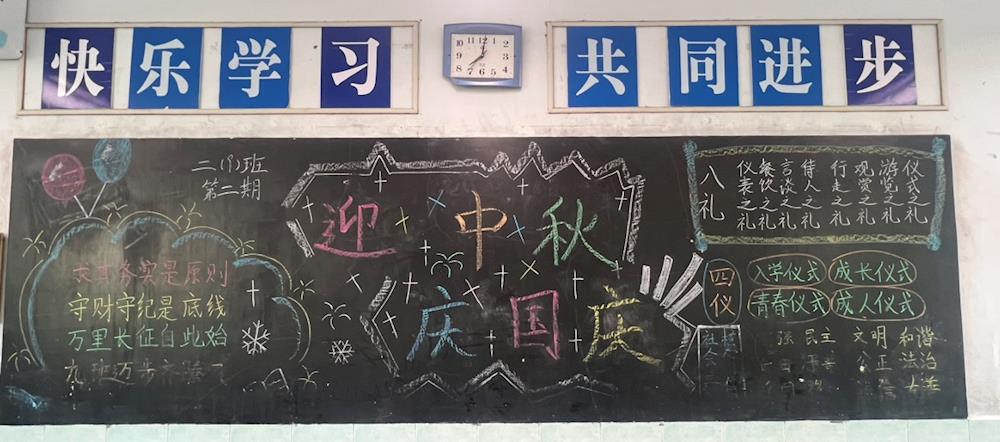 快乐学习
共同进步
二(9)班
第二期
迎中秋
庆国庆
求真务实是原则
守财守纪是底线
万里长征自此始
九班迈步
八礼
仪表之礼
餐饮之礼
言谈之礼
待人之礼
行走之礼
观赏之礼
游览之礼
仪式之礼
四仪
入学仪式
成长仪式
青春仪式
成人仪式
强 民主 文明 和谐
正 法治